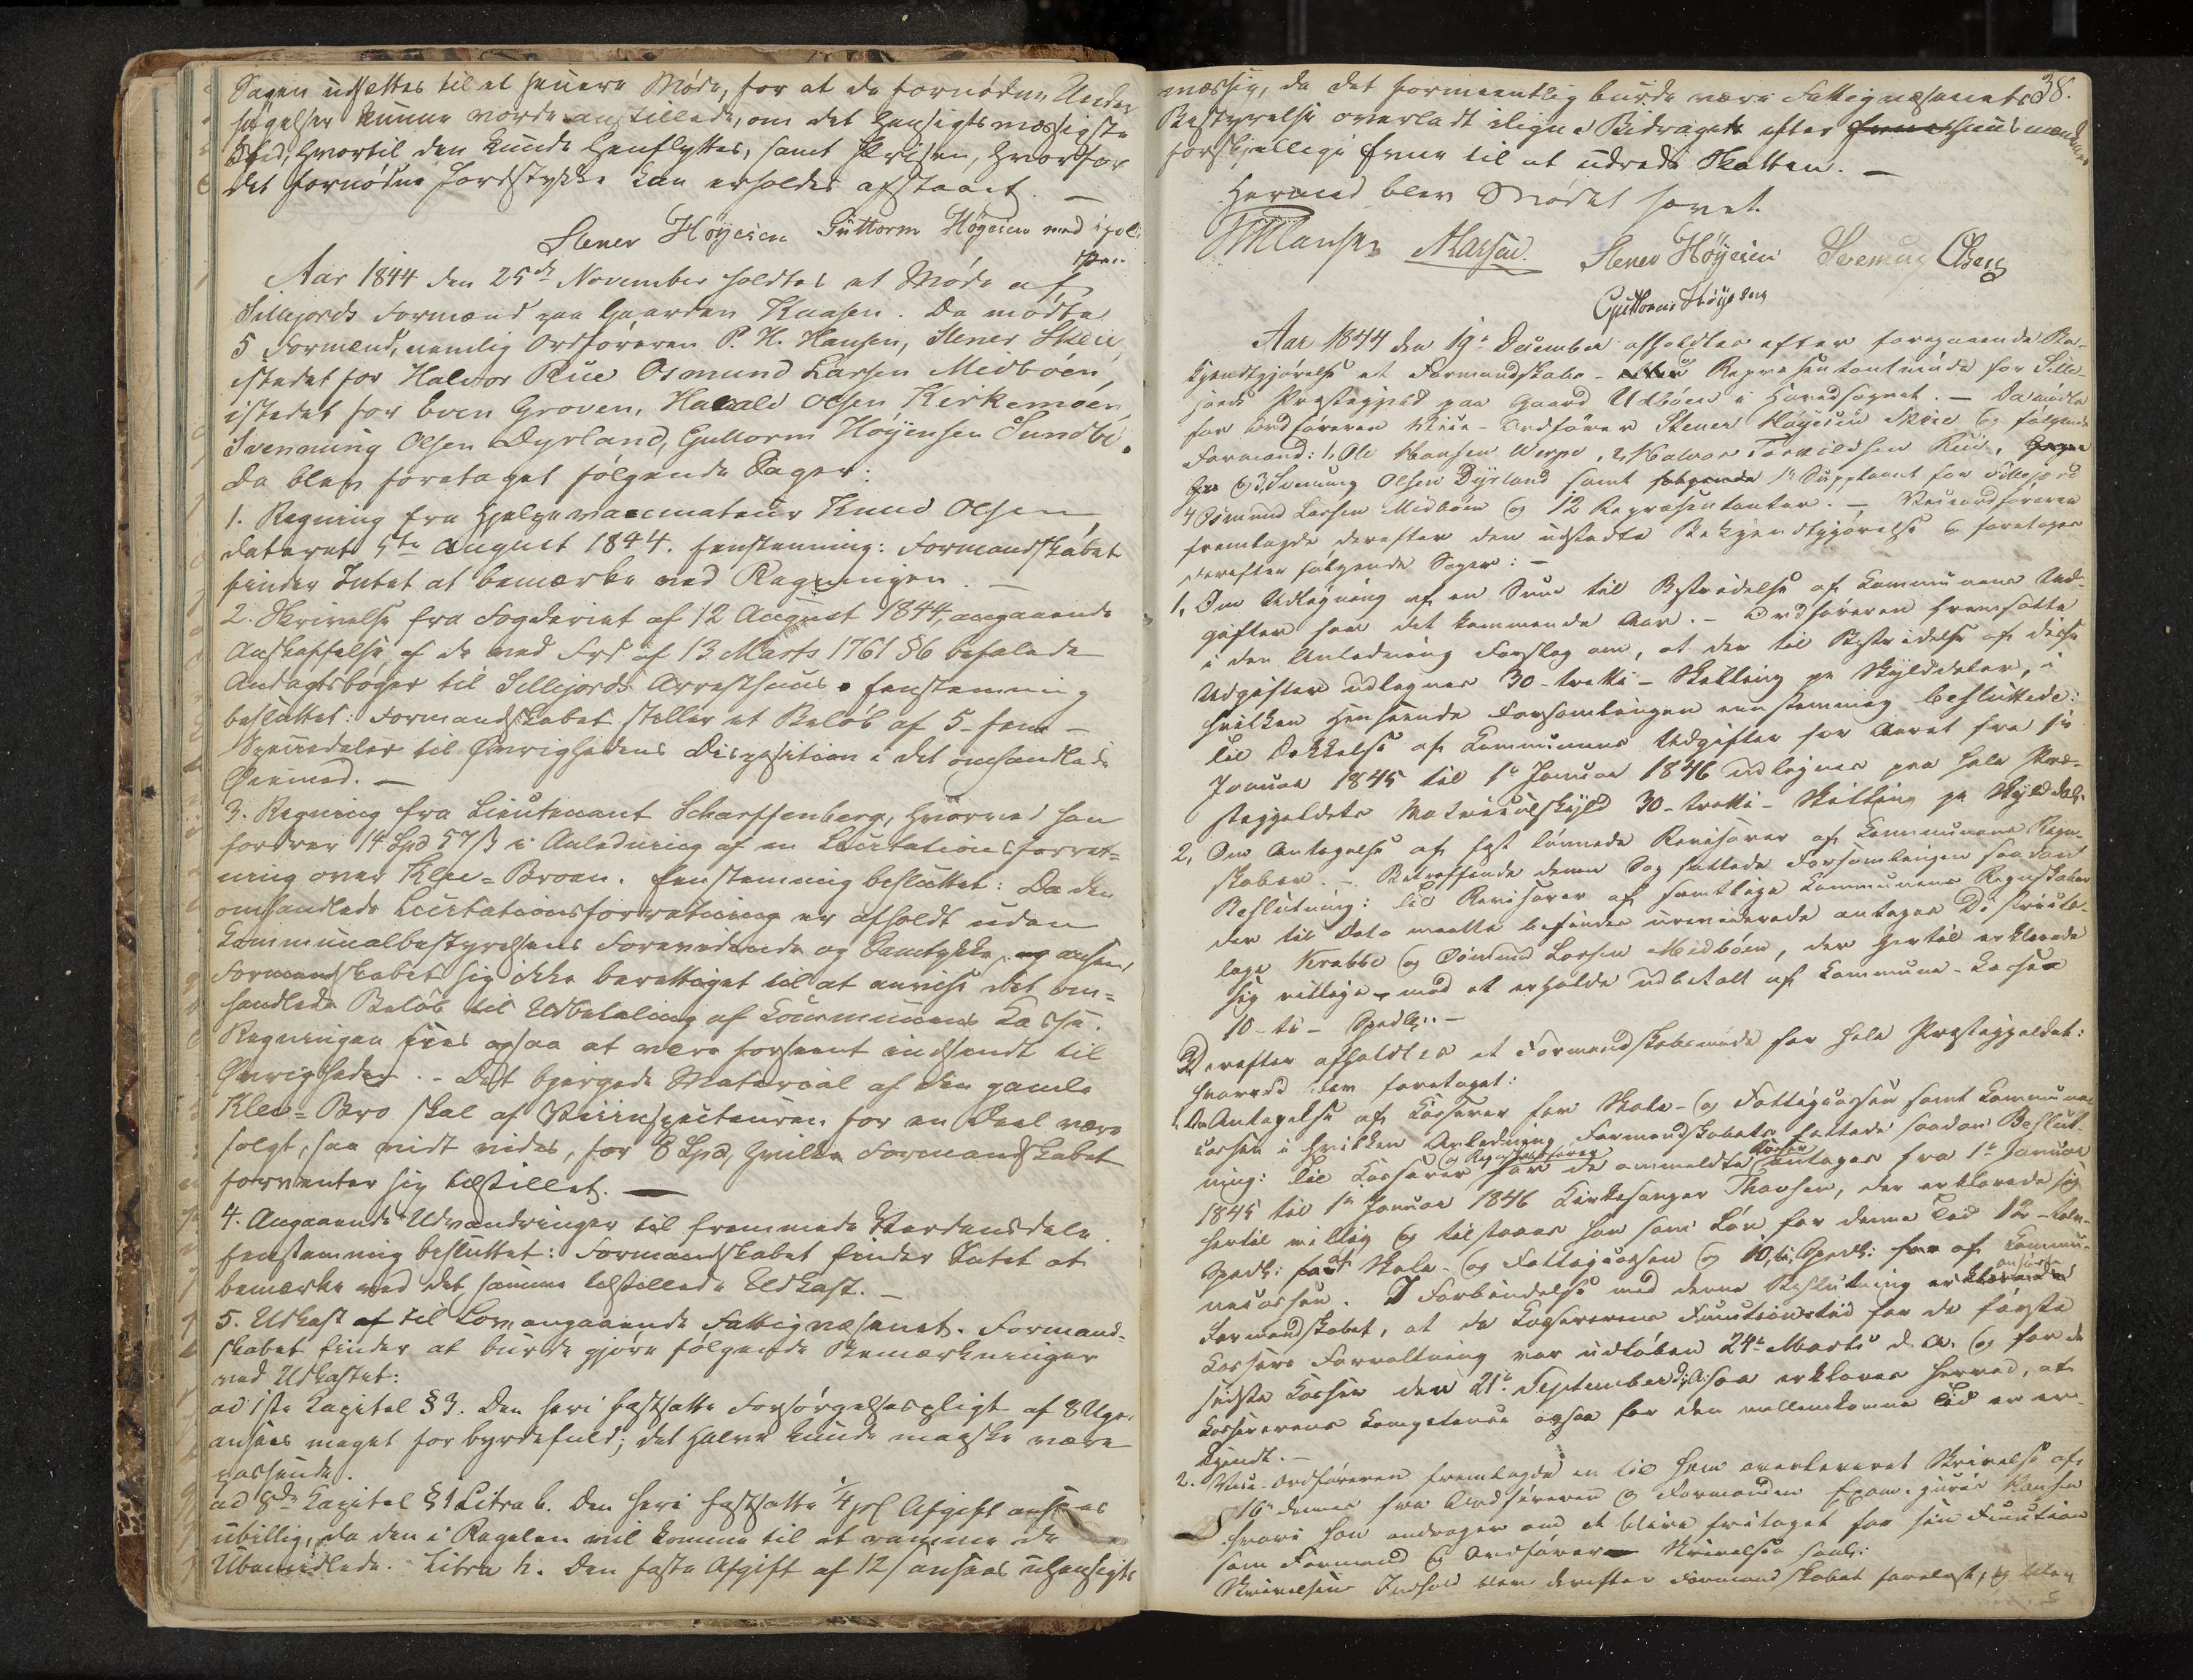 Sagen udsættes til et senere Møde, for at de fornødne Under
søgelser kunne vorde anstillede, om det hensigtsmæssigste
Sted, hvortil den kunde henflyttes, samt Prisen, hvorfor
det fornødne Jordstykke kan erholdes afstaaet. —
Stener Høyesen Guttorm Høyesen med ipol:
Pen.
Aar 1844 den 25de November holdtes et Møde af
Sillejords Formænd paa Gaarden Kaasen. Da mødte
5 Formænd, nemlig Ordføreren P. H. Hansen, Stener Skeie,
istedet for Halvor Rue Osmund Larsen Midbøen,
istedet for Even Groven, Harald Olsen Kirkemoen,
Svenning Olsen Dyrland, Guttorm Høyensen Sundbø.
Da blev foretaget følgende Sager:
1. Regning fra Hjelpevaccinateur Knud Olsen,
dateret 5te August 1844. Eenstemmig: Formandskabet
finder Intet at bemærke ved Regningen. —
2. Skrivelse fra Fogderiet af 12 August 1844, angaaende
Anskaffelse af de ved Frd. af 13 Marts 1761 §6 befalede
Andagtsbøger til Sillejords Arresthuus. Eenstemmig
besluttet: Formandskabet stiller et Beløb af 5 - fem -
Speciedaler til Øvrighedens Disposition i det omhandlede
Øiemed. —
3. Regning fra Lieutenant Scharffenberg, hvorved han
fordrer 14 Spd 57 ß i Anledning af en Licitationsforret-
ning over Klee-Broen. Eenstemmig besluttet: Da den
omhandlede Licitationsforretning er afholdt uden
Kommunalbestyrelsens Forevidende og Samtykke, og anseer
Formandskabet sig ikke berettiget til at anvise det om-
handlede Beløb til Udbetaling af Kommunens Kasse.
Regningen sees ogsaa at være forseent indsendt til
Øvrigheden. - Det bjergede Material af den gamle
Klee-Bro skal af Veiinspecteuren for en Deel være
solgt, saa vidt vides, for 8 Spd, hvilke Formandskabet
forventer sig tilstillet. —
4. Angaaende Udvandringer til fremmede Verdensdele.
Eenstemmig besluttet: Formandskabet finder Intet at
bemærke ved det samme tilstillede Udkast. —
5. Udkast af til Lov, angaaende Fattigvæsenet. Formand-
skabet finder at burde gjøre følgende Bemærkninger
ved Udkastet:
ad 1ste Kapitel §3. Den heri fastsatte Forsørgelsespligt af 8 Uger
ansees meget for byrdefuld; det halve kunde maaske være
passende.
ad 8de Kapitel §1 Litra b. Den heri fastsatte ¼ pCt Afgift ansees
ubillig, da den i Regelen vil komme til at ramme de
Ubemidlede. Litra h. Den faste Afgift af 12 ß ansees uhensigts
38.
mæssig, da det formeentlig burde være Fattigvæsenets
Bestyrelse overladt at ligne Bidraget efter Huusmændenes
forskjellige Evne til at udrede Skatten. —
Hermed blev Mødet hævet.
PHHansen Stener Høyesen Svenning Olsen
Guttorm Høyesen
Aar 1844 den 19de December afholdtes efter foregaaende Be-
kjendtgjørelse et Formandskabs- Repræsentantmøde for Sille-
jords Præstegjeld paa Gaard Utbøen i Hovedsognet. — Da mødte
for Ordføreren Vice-Ordfører Stener Høyesen Skeie og følgende
Formænd: 1, Ole Hansen Verpe, 2, Halvor Torkildsen Rue,
og 3, Svenning Olsen Dyrland samt 1ste Suppleant for Sillejord
4 Osmund Larsen Midbøen og 12 Repræsentanter. — Viceordføreren
fremlagde derefter den udstedte Bekjendtgjørelse og foretoges
derefter følgende Sager: —
1, Om Udligning af en Sum til Bestridelse af Kommunens Ud-
gifter for det kommende Aar. — Ordføreren fremsatte
i den Anledning Forslag om, at der til Bestridelse af disse
Udgifter udlignes 30 - tretti - Skilling pr Skylddaler, i
hvilken Henseende Forsamlingen eenstemmig besluttede:
Til Dækkelse af Kommunens Udgifter for Aaret fra 1ste
Januar 1845 til 1ste Januar 1846 udlignes paa hele Præ-
stegjeldets Matriculskyld 30 - tretti - Skilling pr Skylddaler
2, Om Antagelse af fast lønnede Revisorer af Kommunens Regn-
skaber. — Betreffende denne Sag fattede Forsamlingen saadan
Beslutning: Til Revisorer af samtlige Kommunens Regnskaber
der til Dato maatte befindes ureviderede antages Districts-
læge Krabbe og Osmund Larsen Midbøen, der hertil erklærede
sig villige mod at erholde udbetalt af Kommune-Kassen
10 - ti - Spedlr. —
Derefter afholdtes et Formandskabsmøde for hele Præstegjeldet:
hvorved blev foretaget:
1. Om Antagelse af Kasserer for Skole- og Fattigcassen samt Kommune-
cassen i hvilken Anledning Formandskabet fattede saadan Beslut-
ning: Til Kasserer og Regnskabsfører for de ommeldte Kasser antages fra 1ste Januar
1845 til 1ste Januar 1846 Kirkesanger Thorsen, der erklærede sig
hertil villig og tilstaaes ham som Løn for denne Tid 12 - tolv -
Spedlr: fra Skole- og Fattigcassen og 10, ti, Spedlr: af Kommu-
necassen. I Forbindelse med denne Beslutning anseer
Formandskabet, at da Kassererens Functionstid for de første
Kassers Forvaltning var udløben 24de Marts d. A. og for de
sidste Kasser den 21de September d. A. saa erklæres herved, at
Kassererens Competence ogsaa for den mellemkomne Tid er er-
kjendt. —
2. Vice-Ordføreren fremlagde en til ham overleveret Skrivelse af
16de dennes fra Ordføreren og Formanden Exam. juris Hansen
hvori han andrager om at blive fritaget for sin Function
som Formand og Ordfører — Skrivelsen saal:
Skrivelsens Indhold blev derefter Formandskabet forelæst, og blev